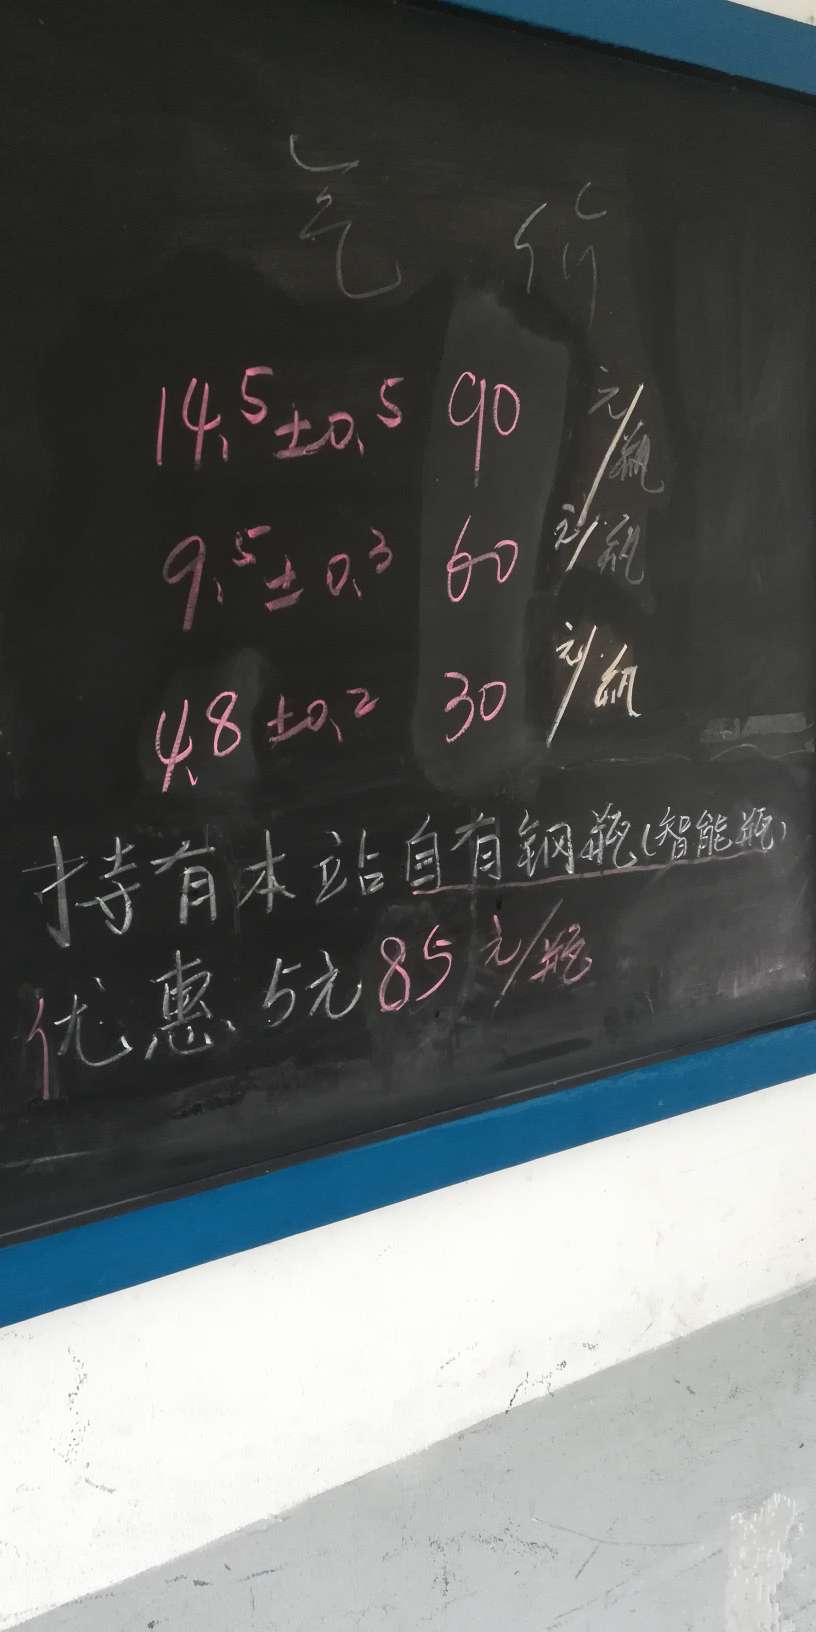 气价
14.5±0.5 90 元/瓶
9.5±0.3 60 元/瓶
4.8±0.2 30 元/瓶
持有本站自有钢瓶(智能瓶)
优惠5元85元/瓶